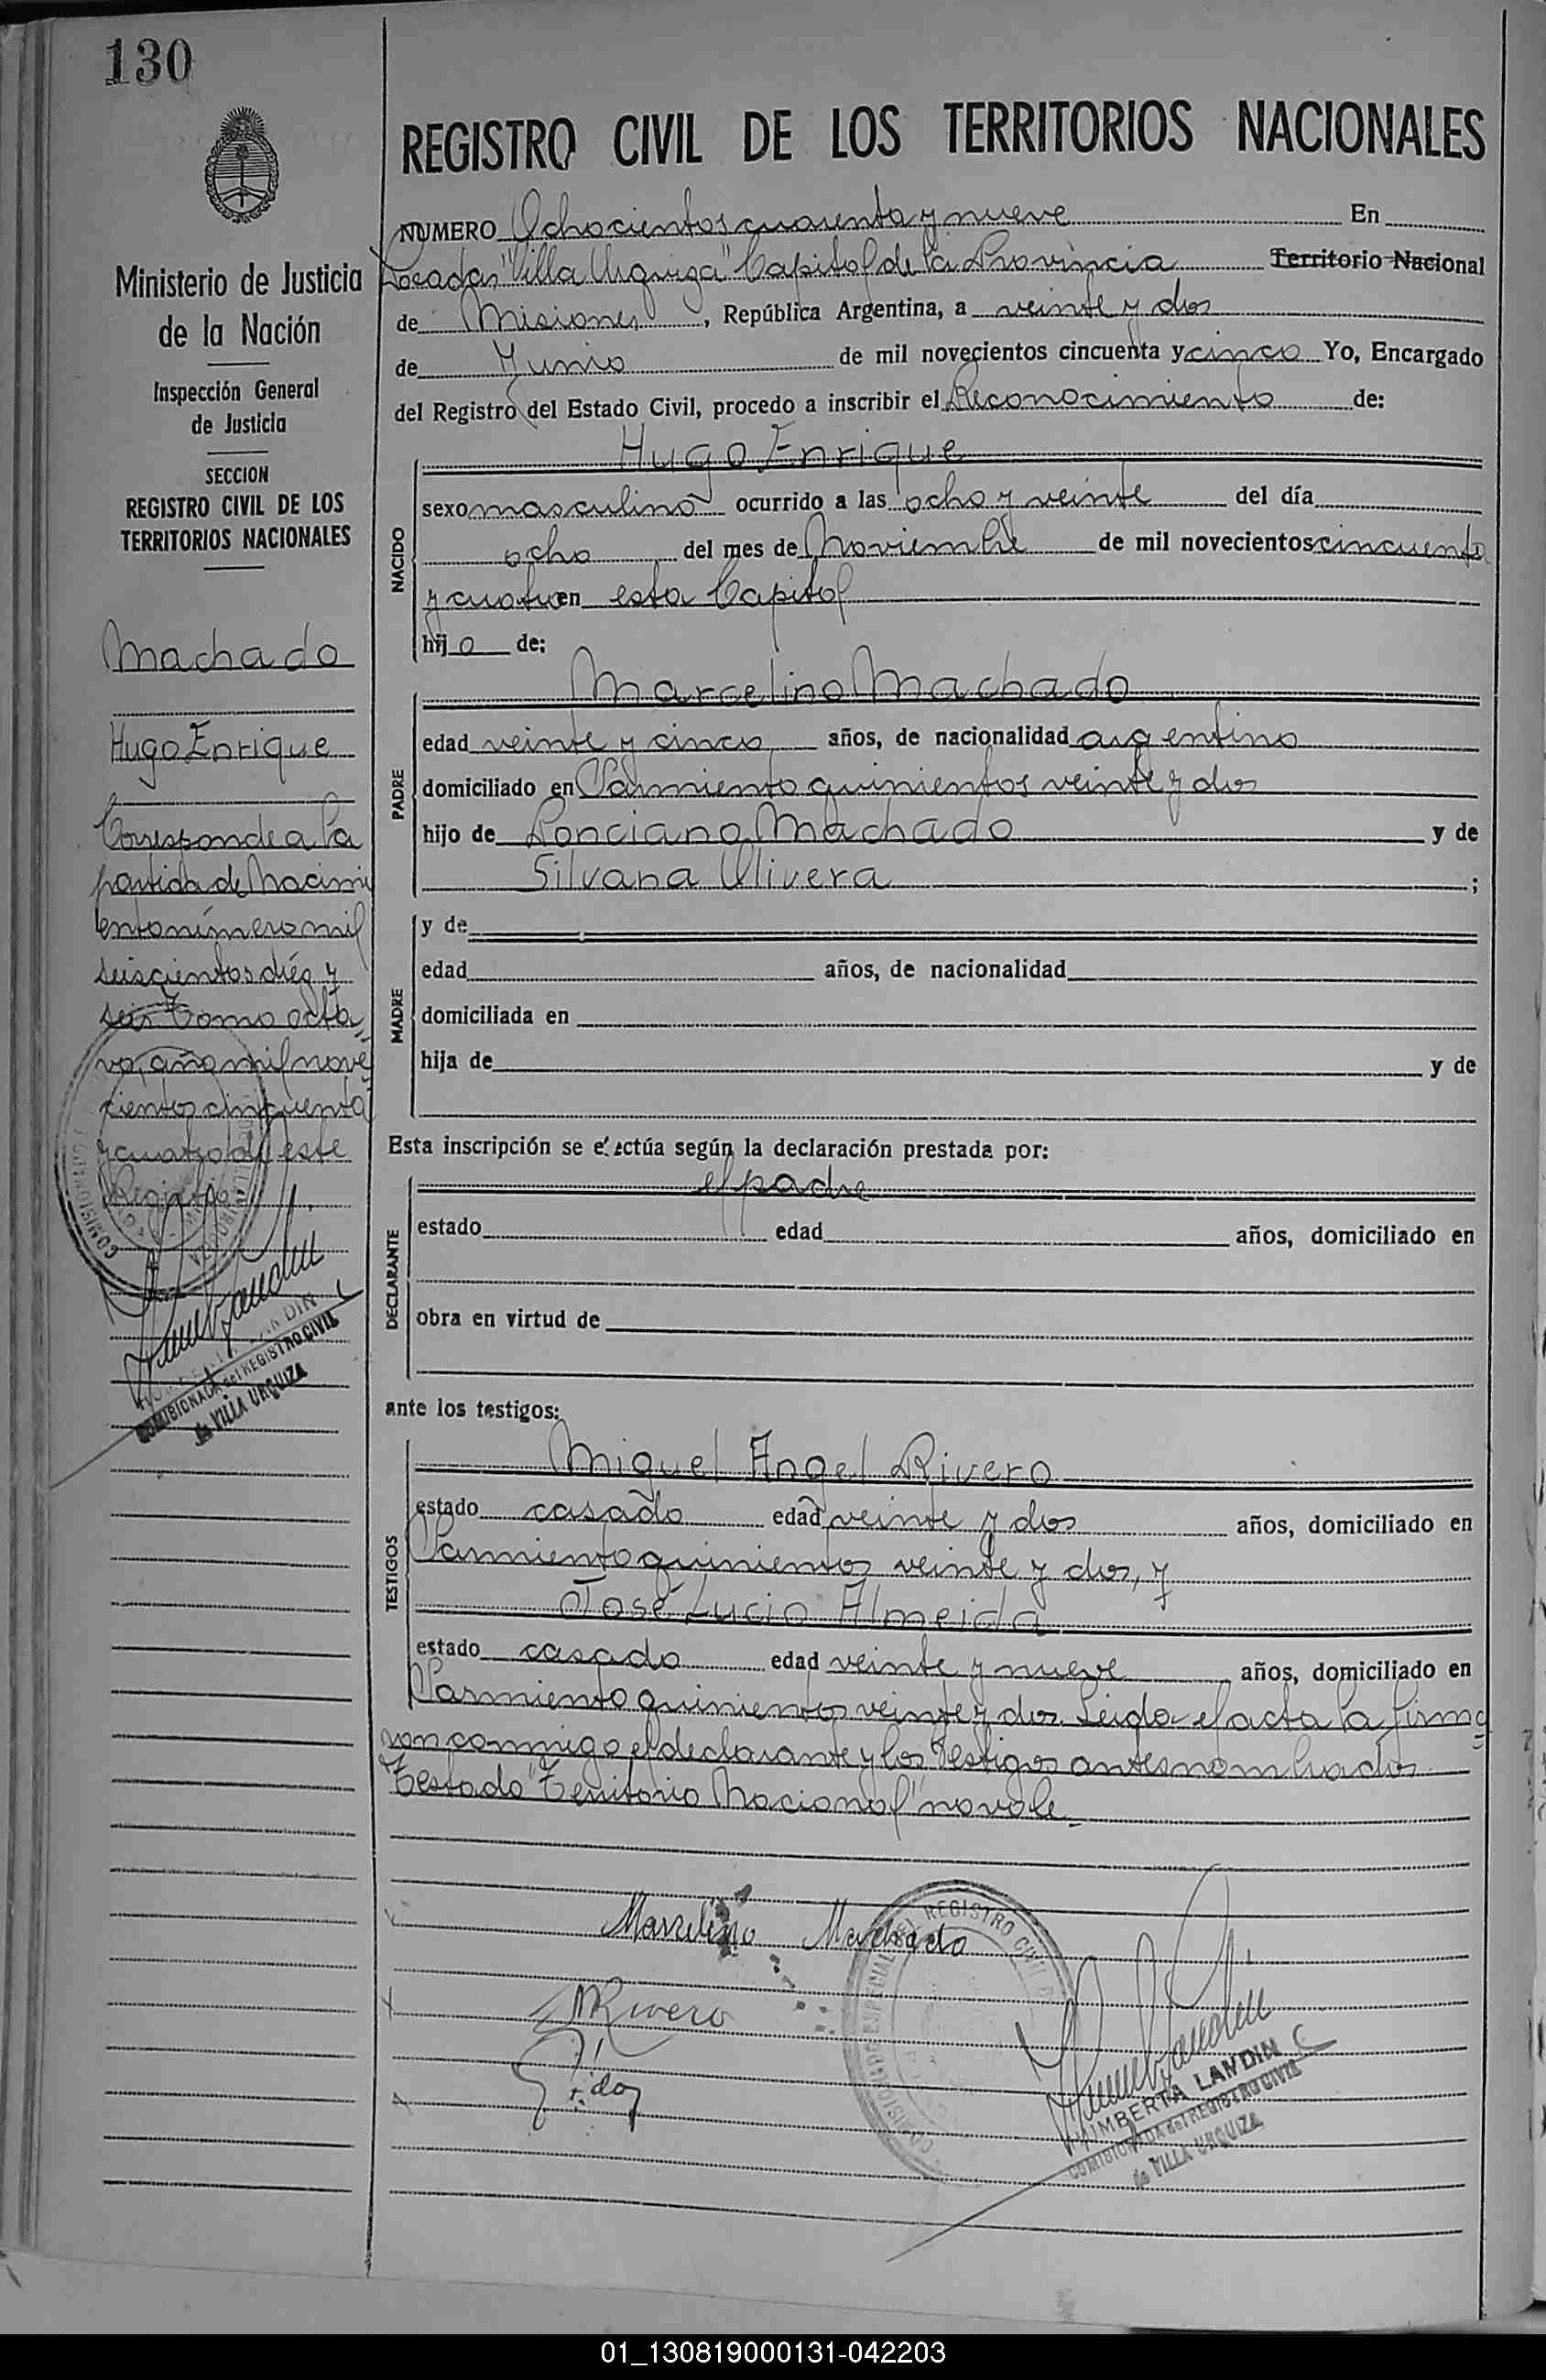 130
REGISTRO CIVIL DE LOS TERRITORIOS NACIONALES
NUMERO Ochocientos cuarenta y nueve En
Posadas "Villa Urquiza" Capital de la Provincia Territorio Nacional
de Misiones, República Argentina, a veinte y dos
de Junio de mil novecientos cincuenta y cinco Yo, Encargado
del Registro del Estado Civil, procedo a inscribir el Reconocimiento de:
Ministerio de Justicia
de la Nación
Inspección General
de Justicia
SECCION
REGISTRO CIVIL DE LOS
TERRITORIOS NACIONALES
Machado
Hugo Enrique
Corresponde a la
partida de Nacimi
ento número mil
seiscientos diéz y
seis Tomo octa-
vo, año mil nove
cientos cincuenta
y cuatro de este
Registro
COMISIONADA del REGISTRO CIVIL
de VILLA URQUIZA
NACIDO
Hugo Enrique
sexo masculino ocurrido a las ocho y veinte del día
ocho del mes de Noviembre de mil novecientos cincuenta
y cuatro en esta Capital
hijo de:
PADRE
Marcelino Machado
edad veinte y cinco años, de nacionalidad argentino
domiciliado en Sarmiento quinientos veinte y dos
hijo de Ponciano Machado y de
Silvana Olivera ;
MADRE
y de
edad años, de nacionalidad
domiciliada en
hija de y de
Esta inscripción se efectúa según la declaración prestada por:
DECLARANTE
el padre
estado edad años, domiciliado en
obra en virtud de
ante los testigos:
TESTIGOS
Miguel Angel Rivero
estado casado edad veinte y dos años, domiciliado en
Sarmiento quinientos veinte y dos, y
José Lucio Almeida
estado casado edad veinte y nueve años, domiciliado en
Sarmiento quinientos veinte y dos. Leída el acta la firma
ron conmigo el declarante y los testigos antes nombrados.
Testado "Territorio Nacional" no vale.-
Marcelino Machado
MRivero
REGISTRO CIVIL
IMBERTA LANDIN
COMISIONADA del REGISTRO CIVIL
de VILLA URQUIZA
01_130819000131-042203